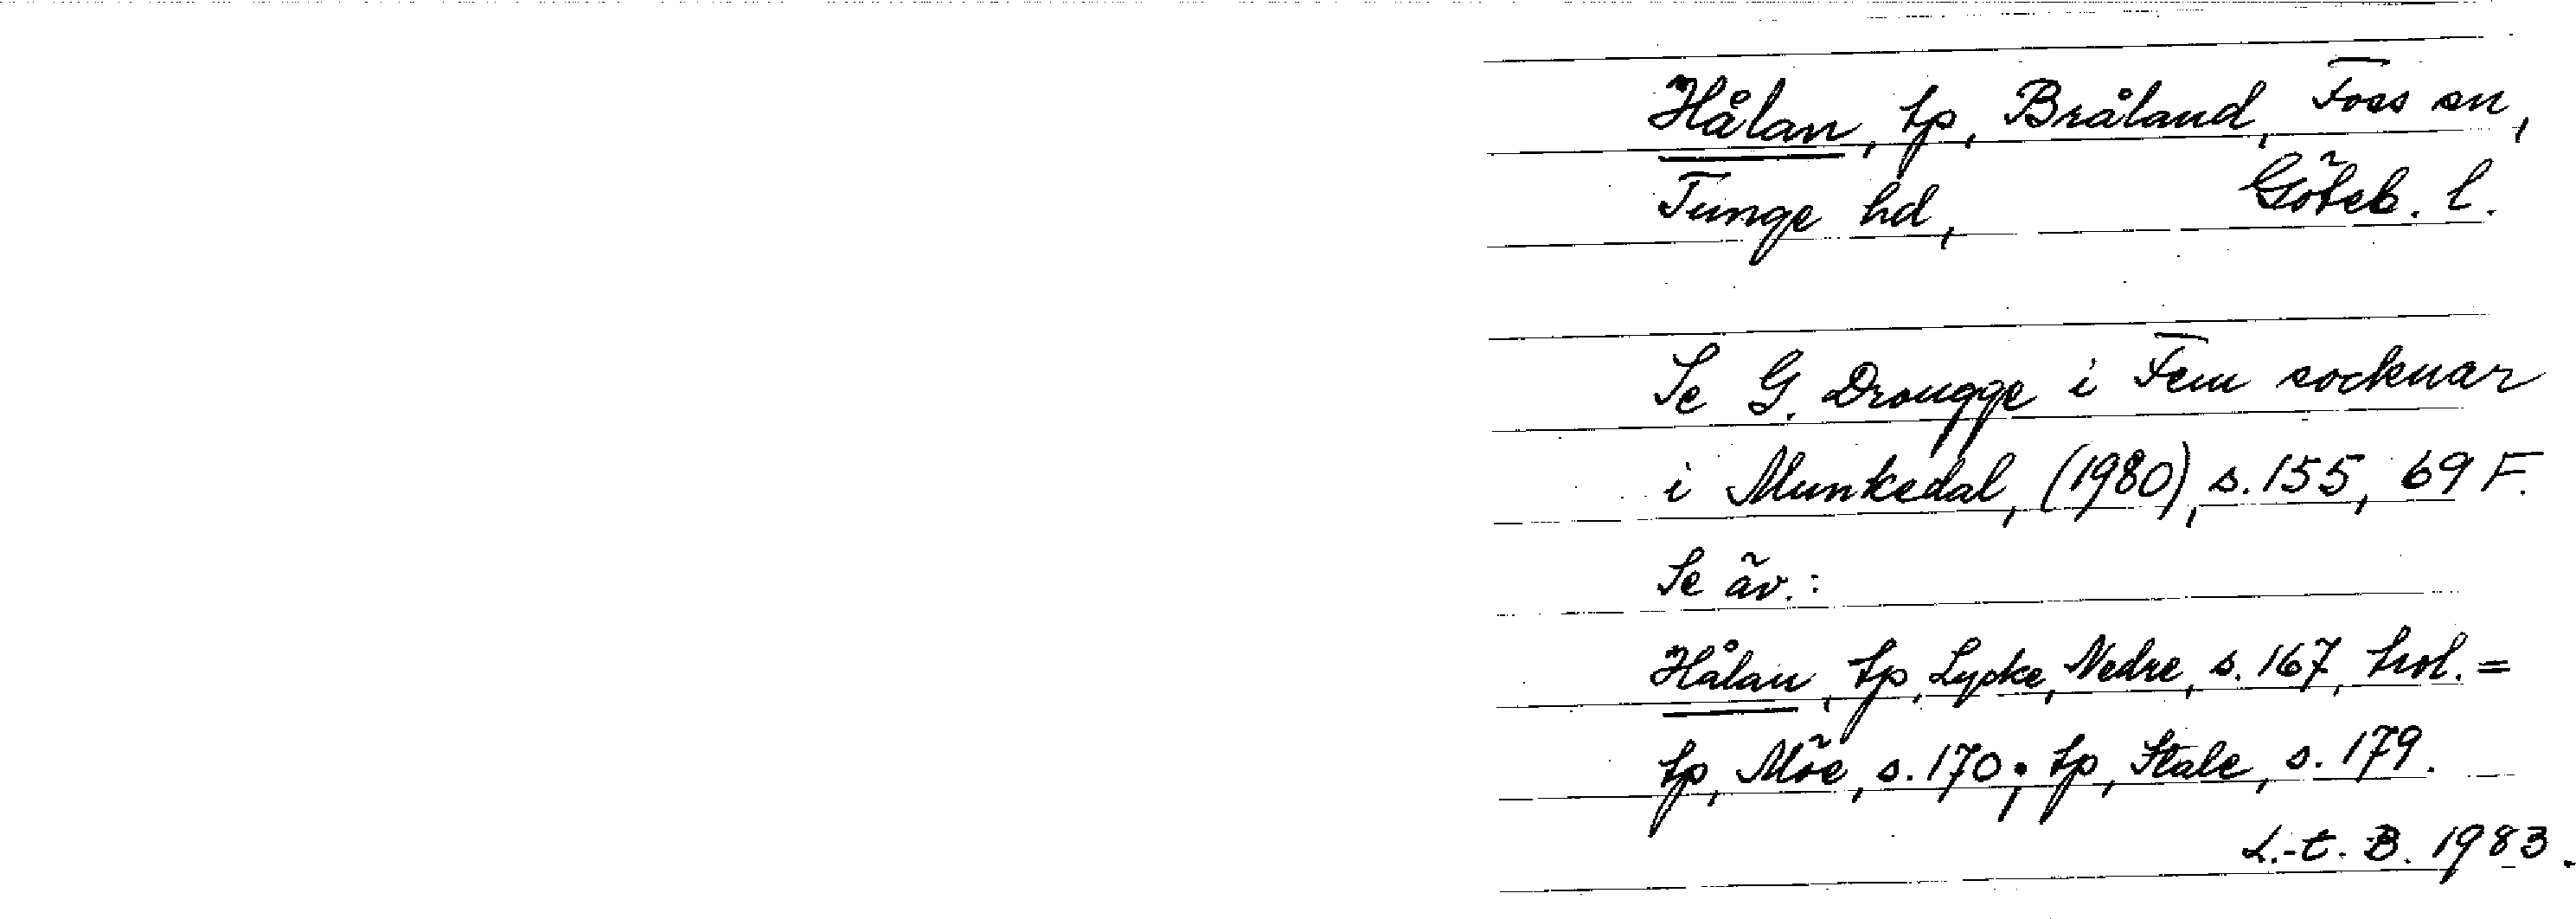 Hålan, tp, Bråland, Foss sn,
Tunge hd, Göteb. l.
Se G. Drougge i Fem socknar
i Munkedal, (1980), s. 155, 69 F.
Se äv.:
Hålan, tp, Lycke, Nedre, s. 167, trol. =
tp, Möe, s. 170; tp, Stale, s. 179.
L.-t. B. 1983.